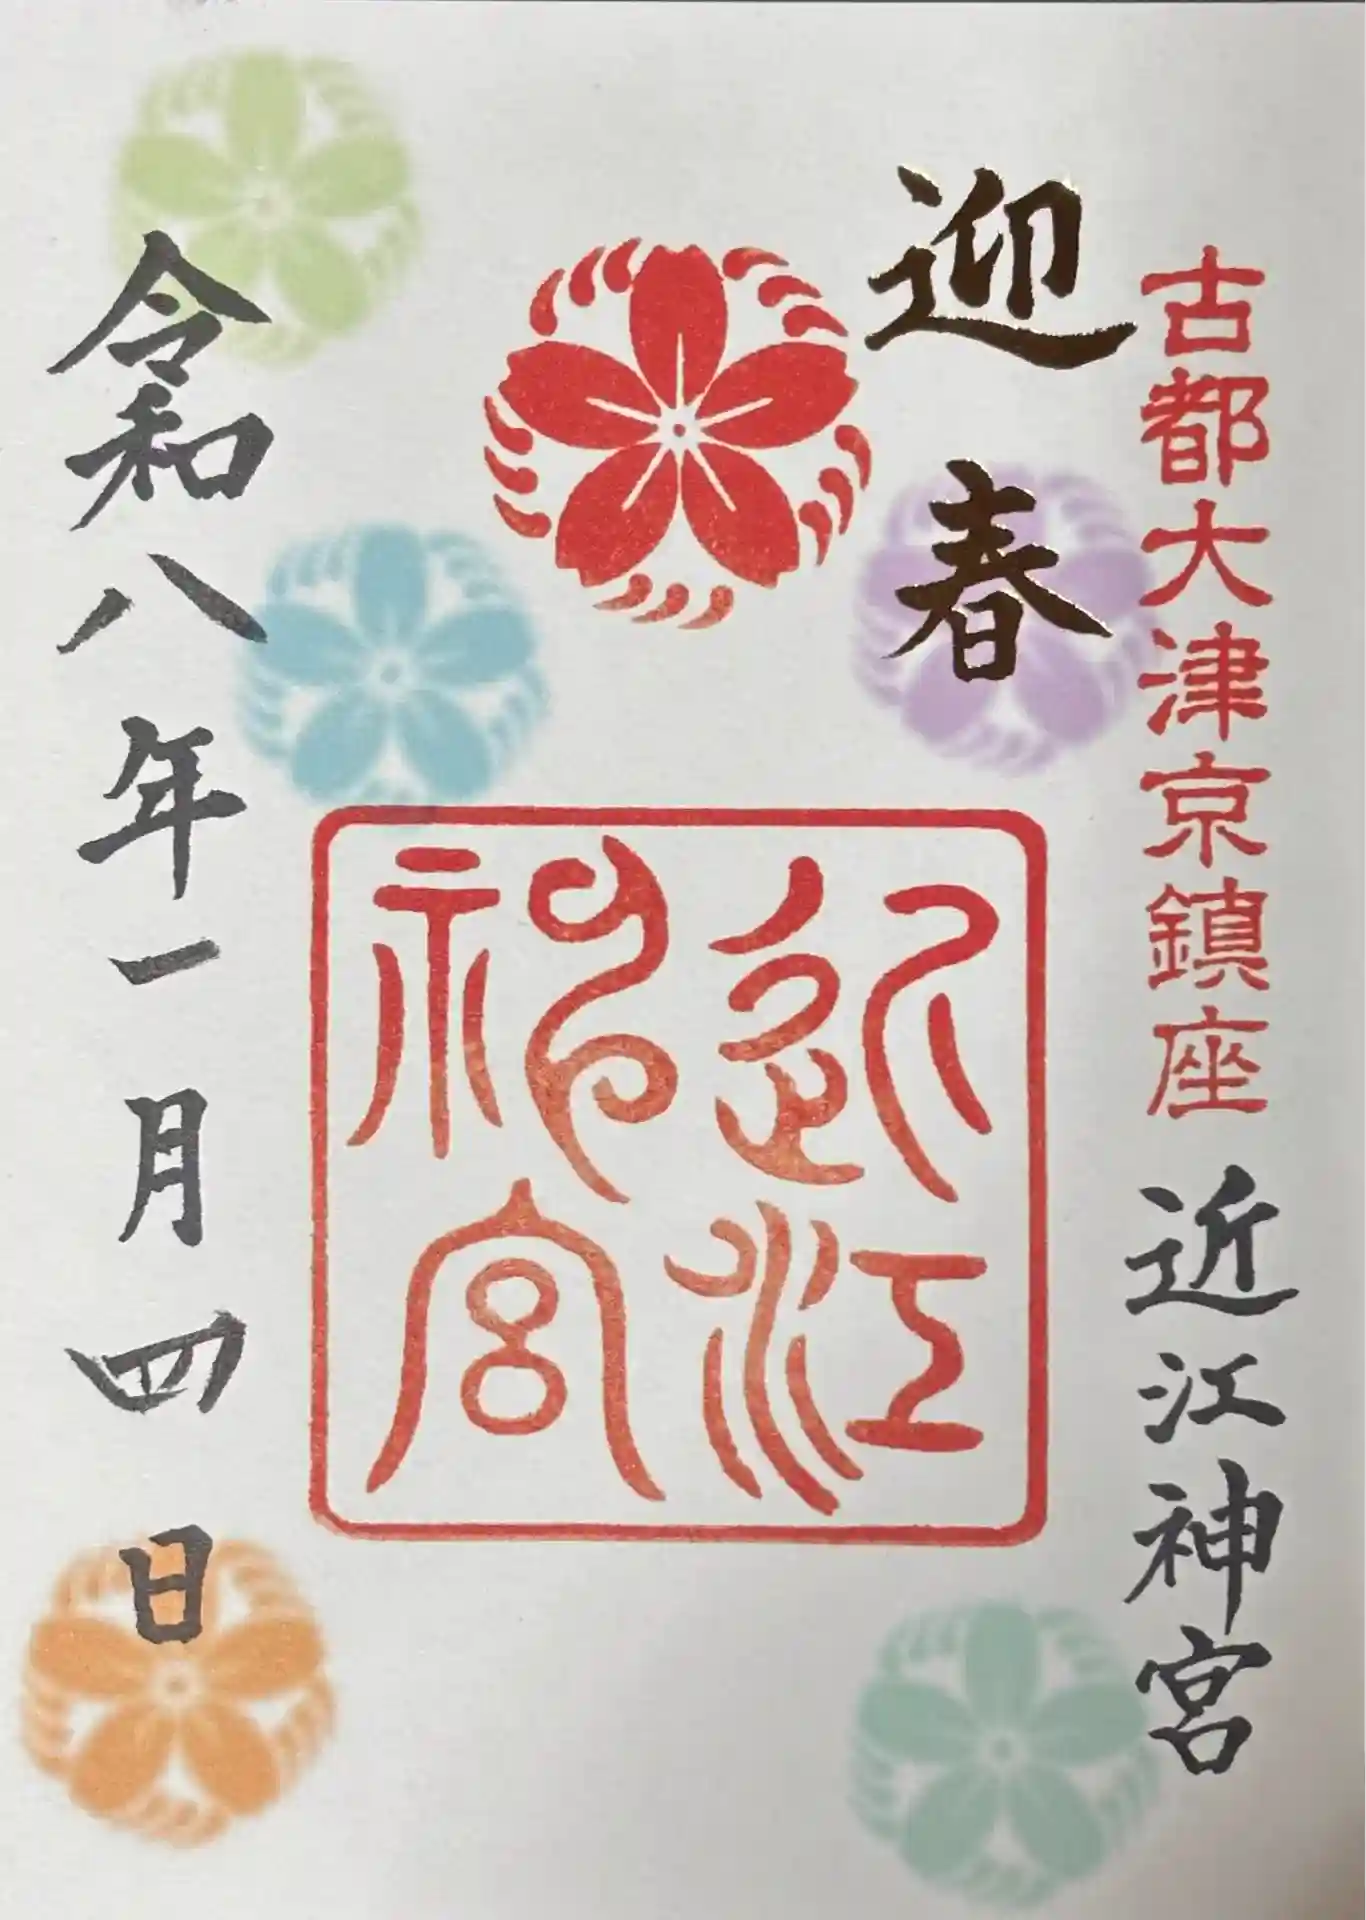 古都大津京鎮座 近江神宮
迎春
近江
神宮
令和八年一月四日